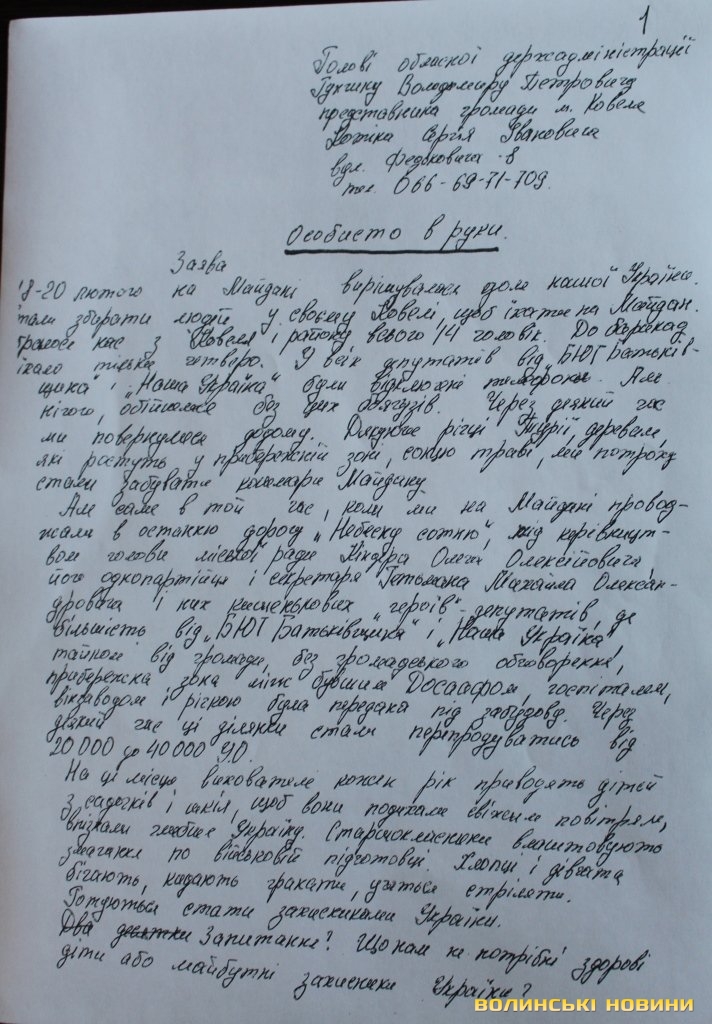 1
Голові обласної держадміністрації
Гунчику Володимиру Петровичу
представника громади м. Ковеля
Сергія Івановича
вул. Федьковича 8
тел. 066-69-71-709.
Особисто в руки.
Заява
18-20 лютого на Майдані вирішувалася доля нашої України.
збирати людей у своєму Ковелі, щоб їхати на Майдан.
нас з Ковеля і району всього 14 чоловік. До барикад
їхало тільки четверо. У всіх депутатів від БЮТ Батьків-
щина" і „Наша Україна" були відключені телефони. Але
нічого, обійшлося без цих боягузів. Через деякий час
ми повернулися додому. Дякуючи річці Турії, деревам,
які ростуть у прибережній зоні, сонцю траві, ми потроху
стали забувати кошмари Майдану
Але саме в той час, коли ми на Майдані провод-
жали в останню дорогу „Небесну сотню", під керівницт-
вом голови міської ради Кіндера Олега Олексійовича,
його однопартійця і секретаря Гетьмана Михайла Олексан-
дровича і них кишенькових "героїв"-депутатів, де
більшість від „БЮТ Батьківщина" і „Наша Україна",
тайном від громади, без громадського обговорення,
прибережна зона між бувшим Досаафом, госпіталем,
і річкою була передана під забудову. Через
деякий час ці ділянки стали перепродуватись від
20 000 до 40 000 У.О.
На ці місця вихователі кожен рік приводять дітей
з садочків і шкіл, щоб вони подихали свіжим повітрям,
впізнали глибше Україну. Старшокласники влаштовують
змагання по військовій підготовці. Хлопці і дівчата
бігають, кидають гранати, учаться стріляти.
Готуються стати захисниками України.
Два десятки Запитання? Що нам не потрібні здорові
діти або майбутні захисники України?
ВОЛИНСЬКІ НОВИНИ